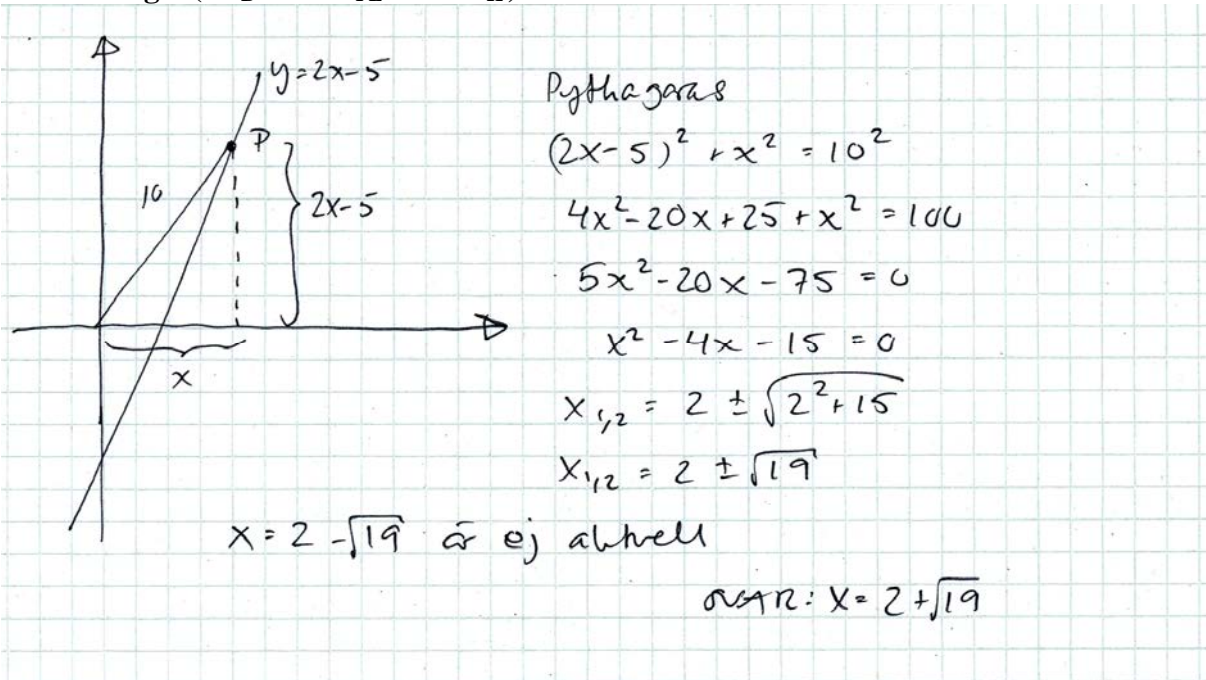 y=2x-5
P
10
2x-5
x
Pythagoras
(2x-5)² + x² = 10²
4x²-20x+25+x² = 100
5x²-20x-75 = 0
x² -4x - 15 = 0
x₁,₂ = 2 ± √(2²+15)
x₁,₂ = 2 ± √19
x = 2 - √19 är ej aktuell
SVAR: x = 2+√19